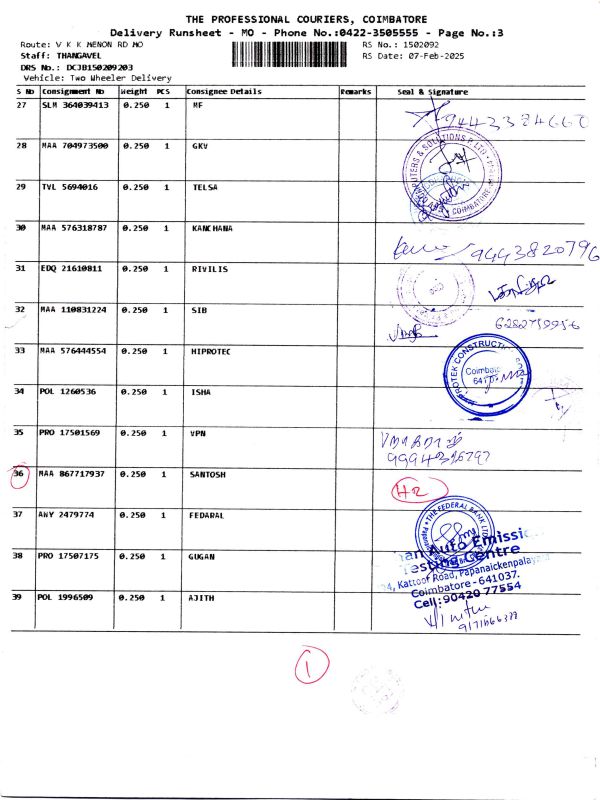 THE PROFESSIONAL COURIERS, COIMBATORE
Delivery Runsheet - MO - Phone No.:0422-3505555 - Page No.:3
Route: V K K MENON RD MO
RS No.: 1502092
Staff: THANGAVEL
RS Date: 07-Feb-2025
DRS No.: DCJB150209203
Vehicle: Two Wheeler Delivery
S No Consignment No Weight PCS Consignee Details Remarks Seal & Signature
27 SLM 364039413 0.250 1 MF
9443384660
28 MAA 704973500 0.250 1 GKV
COMPUTERS & SOLUTIONS P LTD
COIMBATORE
29 TVL 5694016 0.250 1 TELSA
30 MAA 576318787 0.250 1 KANCHANA
9443820796
31 EDQ 21610811 0.250 1 RIVILIS
32 MAA 110831224 0.250 1 SIB
6282759956
33 MAA 576444554 0.250 1 HIPROTEC
CONSTRUCT
Coimbat
641
34 POL 1260536 0.250 1 ISHA
35 PRO 17501569 0.250 1 VPN
36 MAA 867717937 0.250 1 SANTOSH
37 ANY 2479774 0.250 1 FEDARAL
THE FEDERAL BANK LTD
38 PRO 17507175 0.250 1 GUGAN
an Auto Emissi
Testing Centre
24, Kattoor Road, Papanaickenpalaya
Coimbatore - 641037.
Cell: 90420 77554
39 POL 1996509 0.250 1 AJITH
1